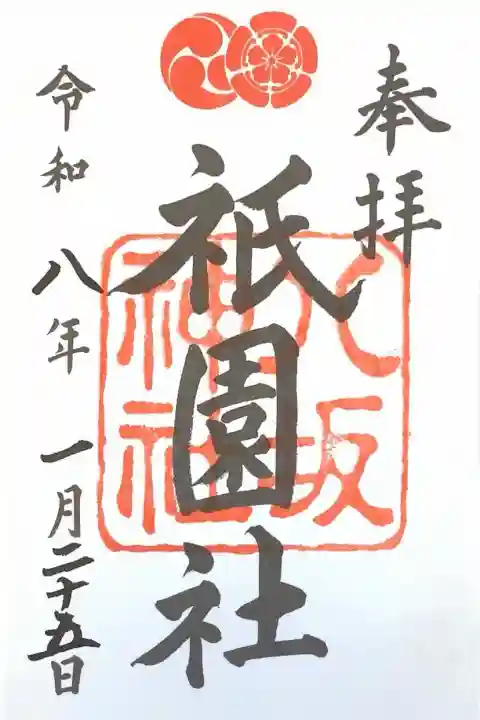 奉拝
八坂
神社
祇園社
令和八年一月二十五日